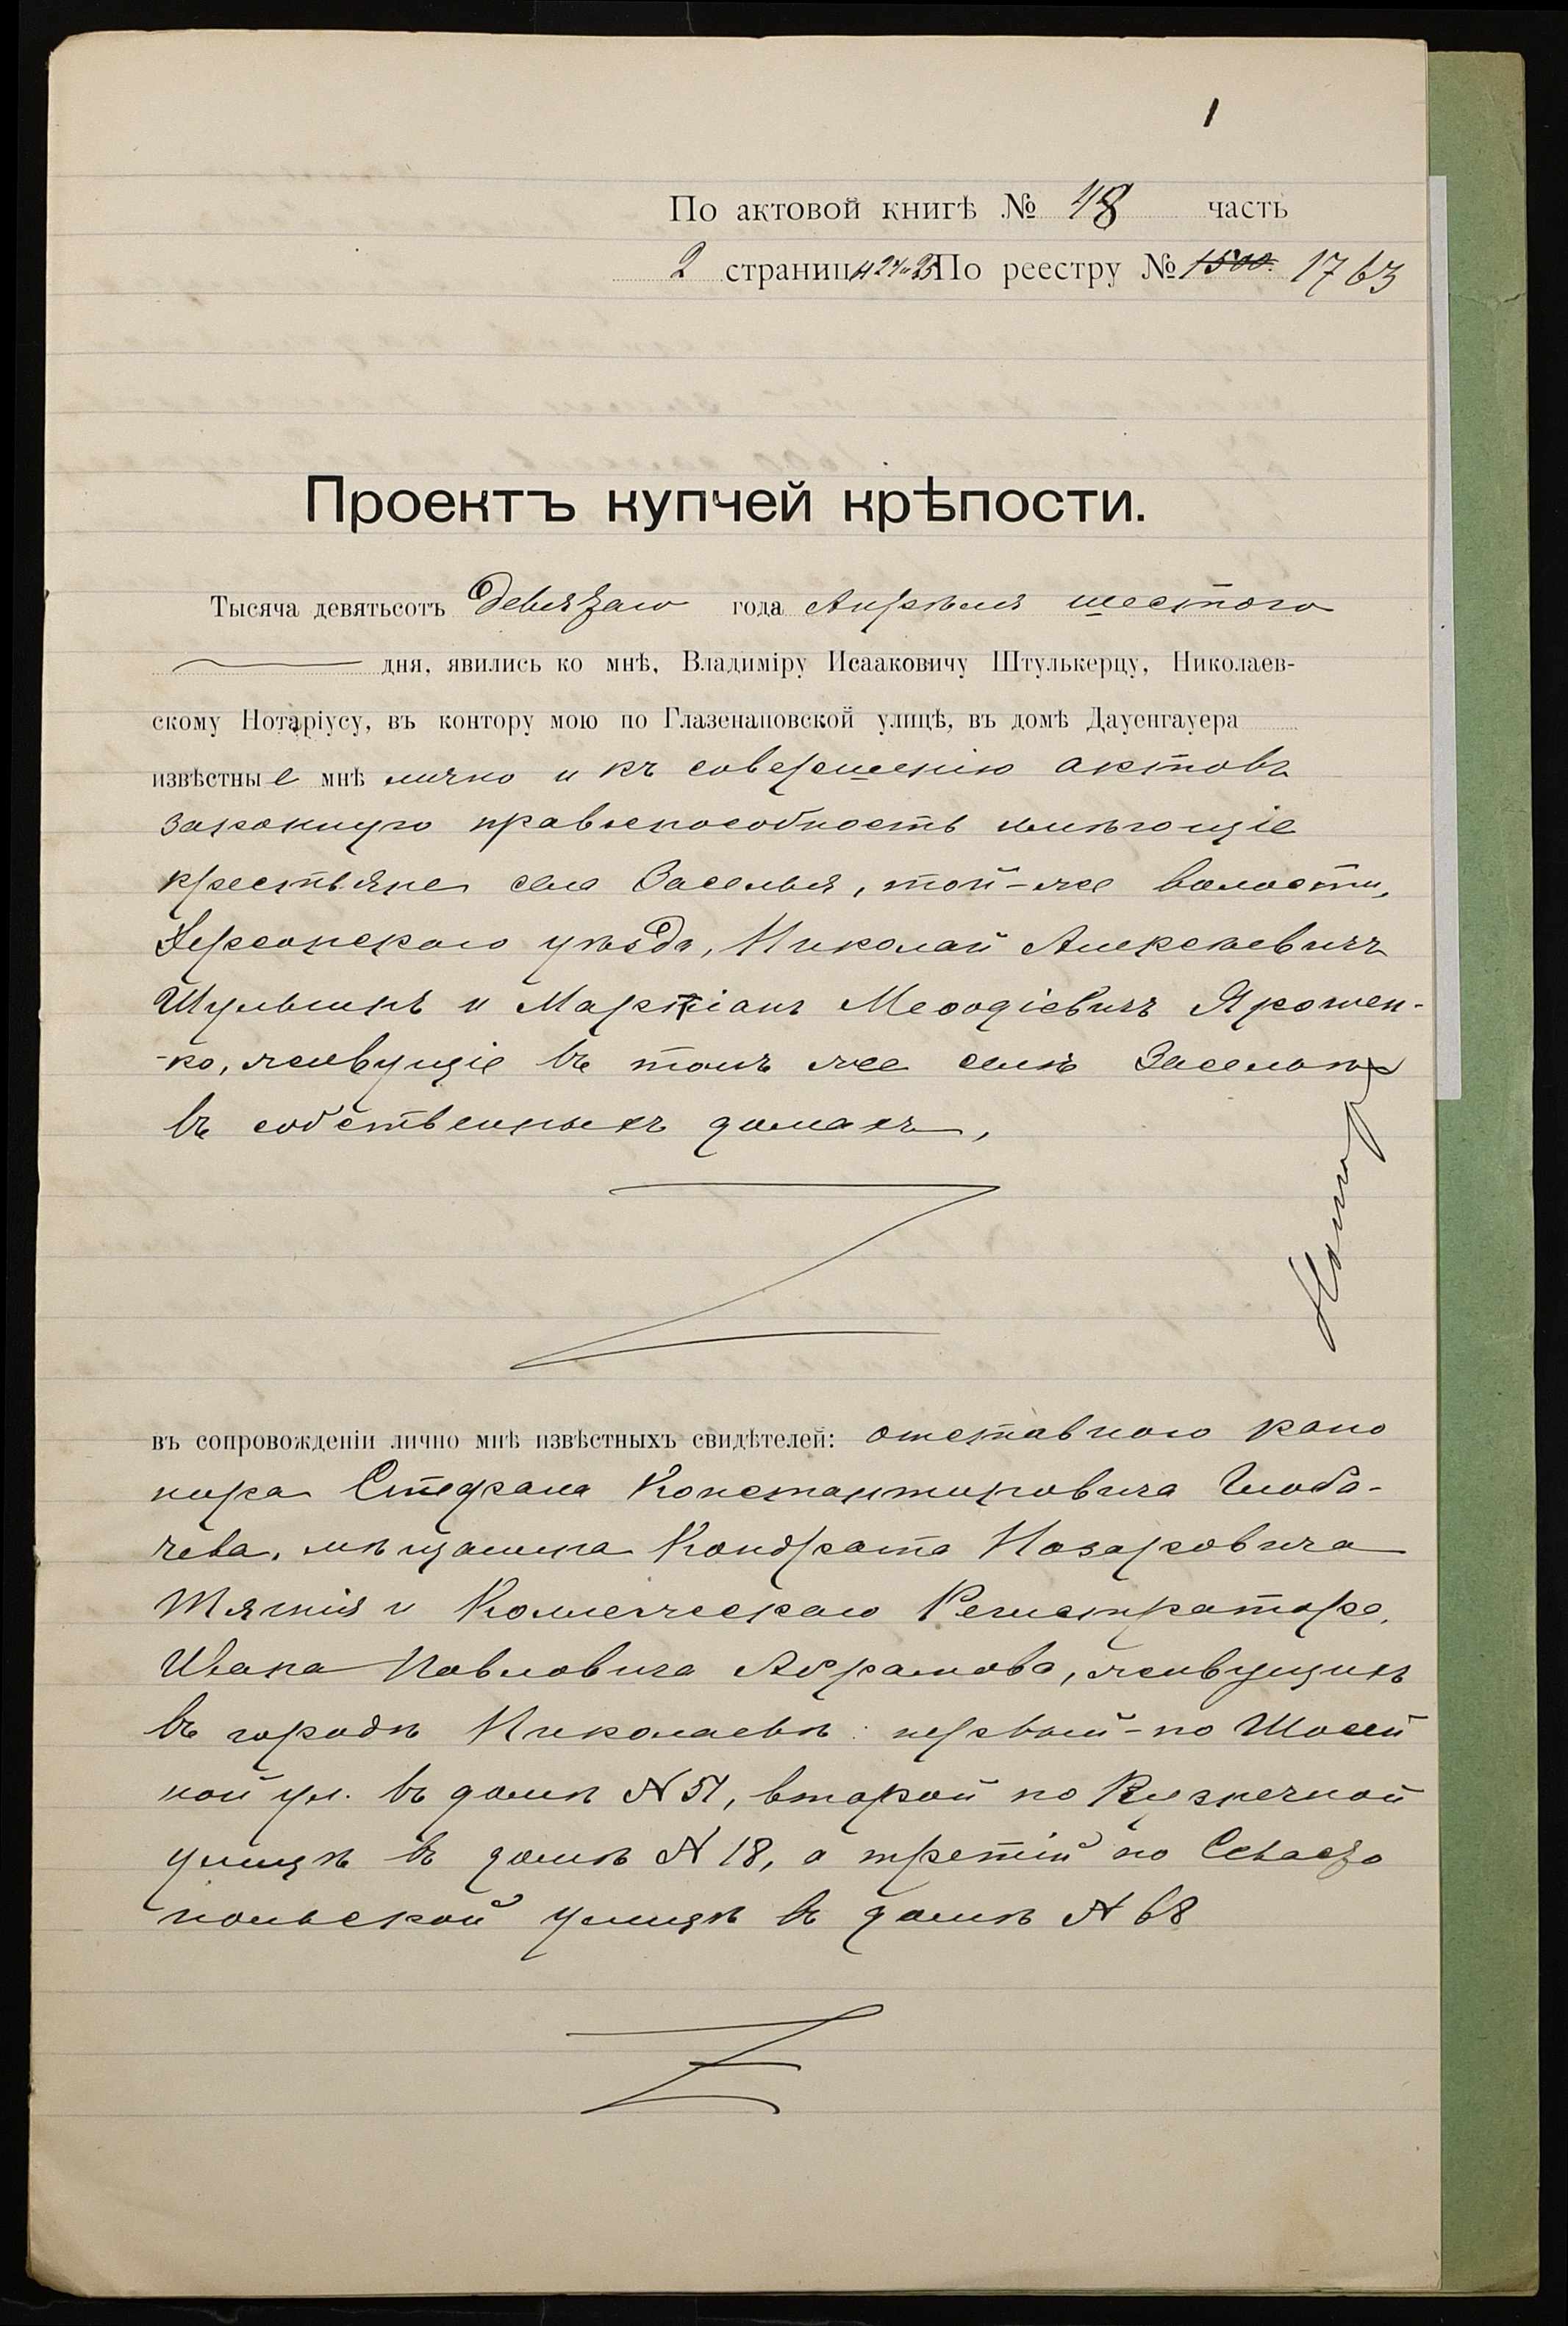 1
По актовой книгѣ № 48 часть
2 страниц 24 и 25 По реестру № 1500. 1763
Проектъ купчей крѣпости.
Тысяча девятьсотъ девятаго года Апрѣля шестого
дня, явились ко мнѣ, Владиміру Исааковичу Штулькерцу, Николаев-
скому Нотаріусу, въ контору мою по Глазенаповской улицѣ, въ домѣ Дауенгауера
извѣстные мнѣ лично и къ совершенію актовъ
законную правоспособность имѣющіе
крестьяне села Заселья, той-же волости,
Херсонскаго уѣзда, Николай Алексѣевичъ
Шульгинъ и Маркіанъ Меѳодіевичъ Ярошен-
-ко, живущіе въ томъ же селѣ Засельѣ
въ собственныхъ домахъ,
въ сопровожденіи лично мнѣ извѣстныхъ свидѣтелей: отставного кано
нира Стефана Константиновича Глоба-
чева, мѣщанина Кондрата Назаровича
и Коллежскаго Регистратора
Ивана Павловича Абрамова, живущихъ
въ городѣ Николаевѣ: первый - по Шоссей
ной ул. въ домѣ № 51, второй по Кузнечной
улицѣ въ домѣ № 18, а третій по Севасто
польской улицѣ въ домѣ № 68